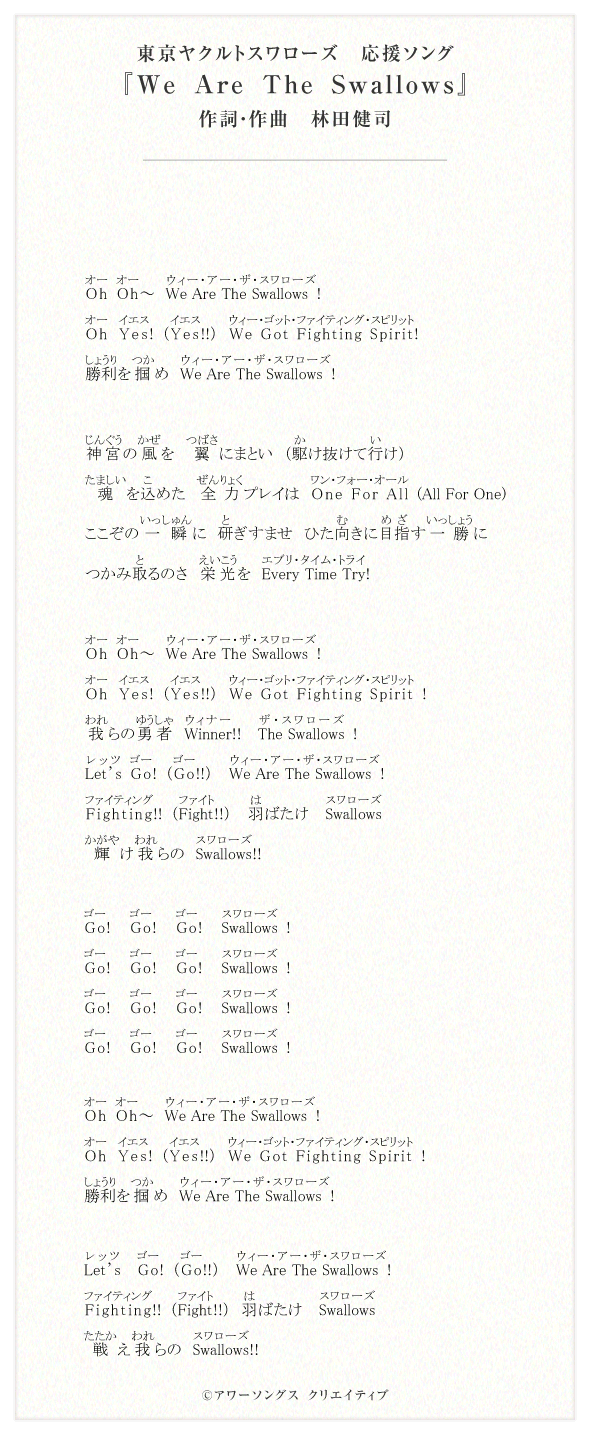 東京ヤクルトスワローズ　応援ソング
『We Are The Swallows』
作詞・作曲　林田健司
オー オー ウィー・アー・ザ・スワローズ
Oh Oh〜 We Are The Swallows !
オー イエス イエス ウィー・ゴット・ファイティング・スピリット
Oh Yes! (Yes!!) We Got Fighting Spirit!
しょうり つか ウィー・アー・ザ・スワローズ
勝利を掴め We Are The Swallows !
じんぐう かぜ つばさ か い
神宮の風を 翼にまとい （駆け抜けて行け）
たましい こ ぜんりょく ワン・フォー・オール
魂を込めた 全力プレイは One For All (All For One)
いっしゅん と む めざ いっしょう
ここぞの一瞬に 研ぎすませ ひた向きに目指す一勝に
と えいこう エブリ・タイム・トライ
つかみ取るのさ 栄光を Every Time Try!
オー オー ウィー・アー・ザ・スワローズ
Oh Oh〜 We Are The Swallows !
オー イエス イエス ウィー・ゴット・ファイティング・スピリット
Oh Yes! (Yes!!) We Got Fighting Spirit !
われ ゆうしゃ ウィナー ザ・スワローズ
我らの勇者 Winner!! The Swallows !
レッツ ゴー ゴー ウィー・アー・ザ・スワローズ
Let's Go! (Go!!) We Are The Swallows !
ファイティング ファイト は スワローズ
Fighting!! (Fight!!) 羽ばたけ Swallows
かがや われ スワローズ
輝け我らの Swallows!!
ゴー ゴー ゴー スワローズ
Go! Go! Go! Swallows !
ゴー ゴー ゴー スワローズ
Go! Go! Go! Swallows !
ゴー ゴー ゴー スワローズ
Go! Go! Go! Swallows !
ゴー ゴー ゴー スワローズ
Go! Go! Go! Swallows !
オー オー ウィー・アー・ザ・スワローズ
Oh Oh〜 We Are The Swallows !
オー イエス イエス ウィー・ゴット・ファイティング・スピリット
Oh Yes! (Yes!!) We Got Fighting Spirit !
しょうり つか ウィー・アー・ザ・スワローズ
勝利を掴め We Are The Swallows !
レッツ ゴー ゴー ウィー・アー・ザ・スワローズ
Let's Go! (Go!!) We Are The Swallows !
ファイティング ファイト は スワローズ
Fighting!! (Fight!!) 羽ばたけ Swallows
たたか われ スワローズ
戦え我らの Swallows!!
©アワーソングス クリエイティブ